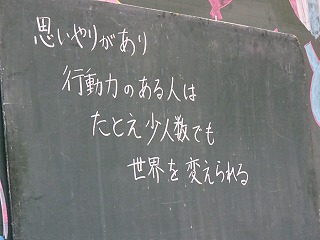 思いやりがあり
行動力のある人は
たとえ少人数でも
世界を変えられる